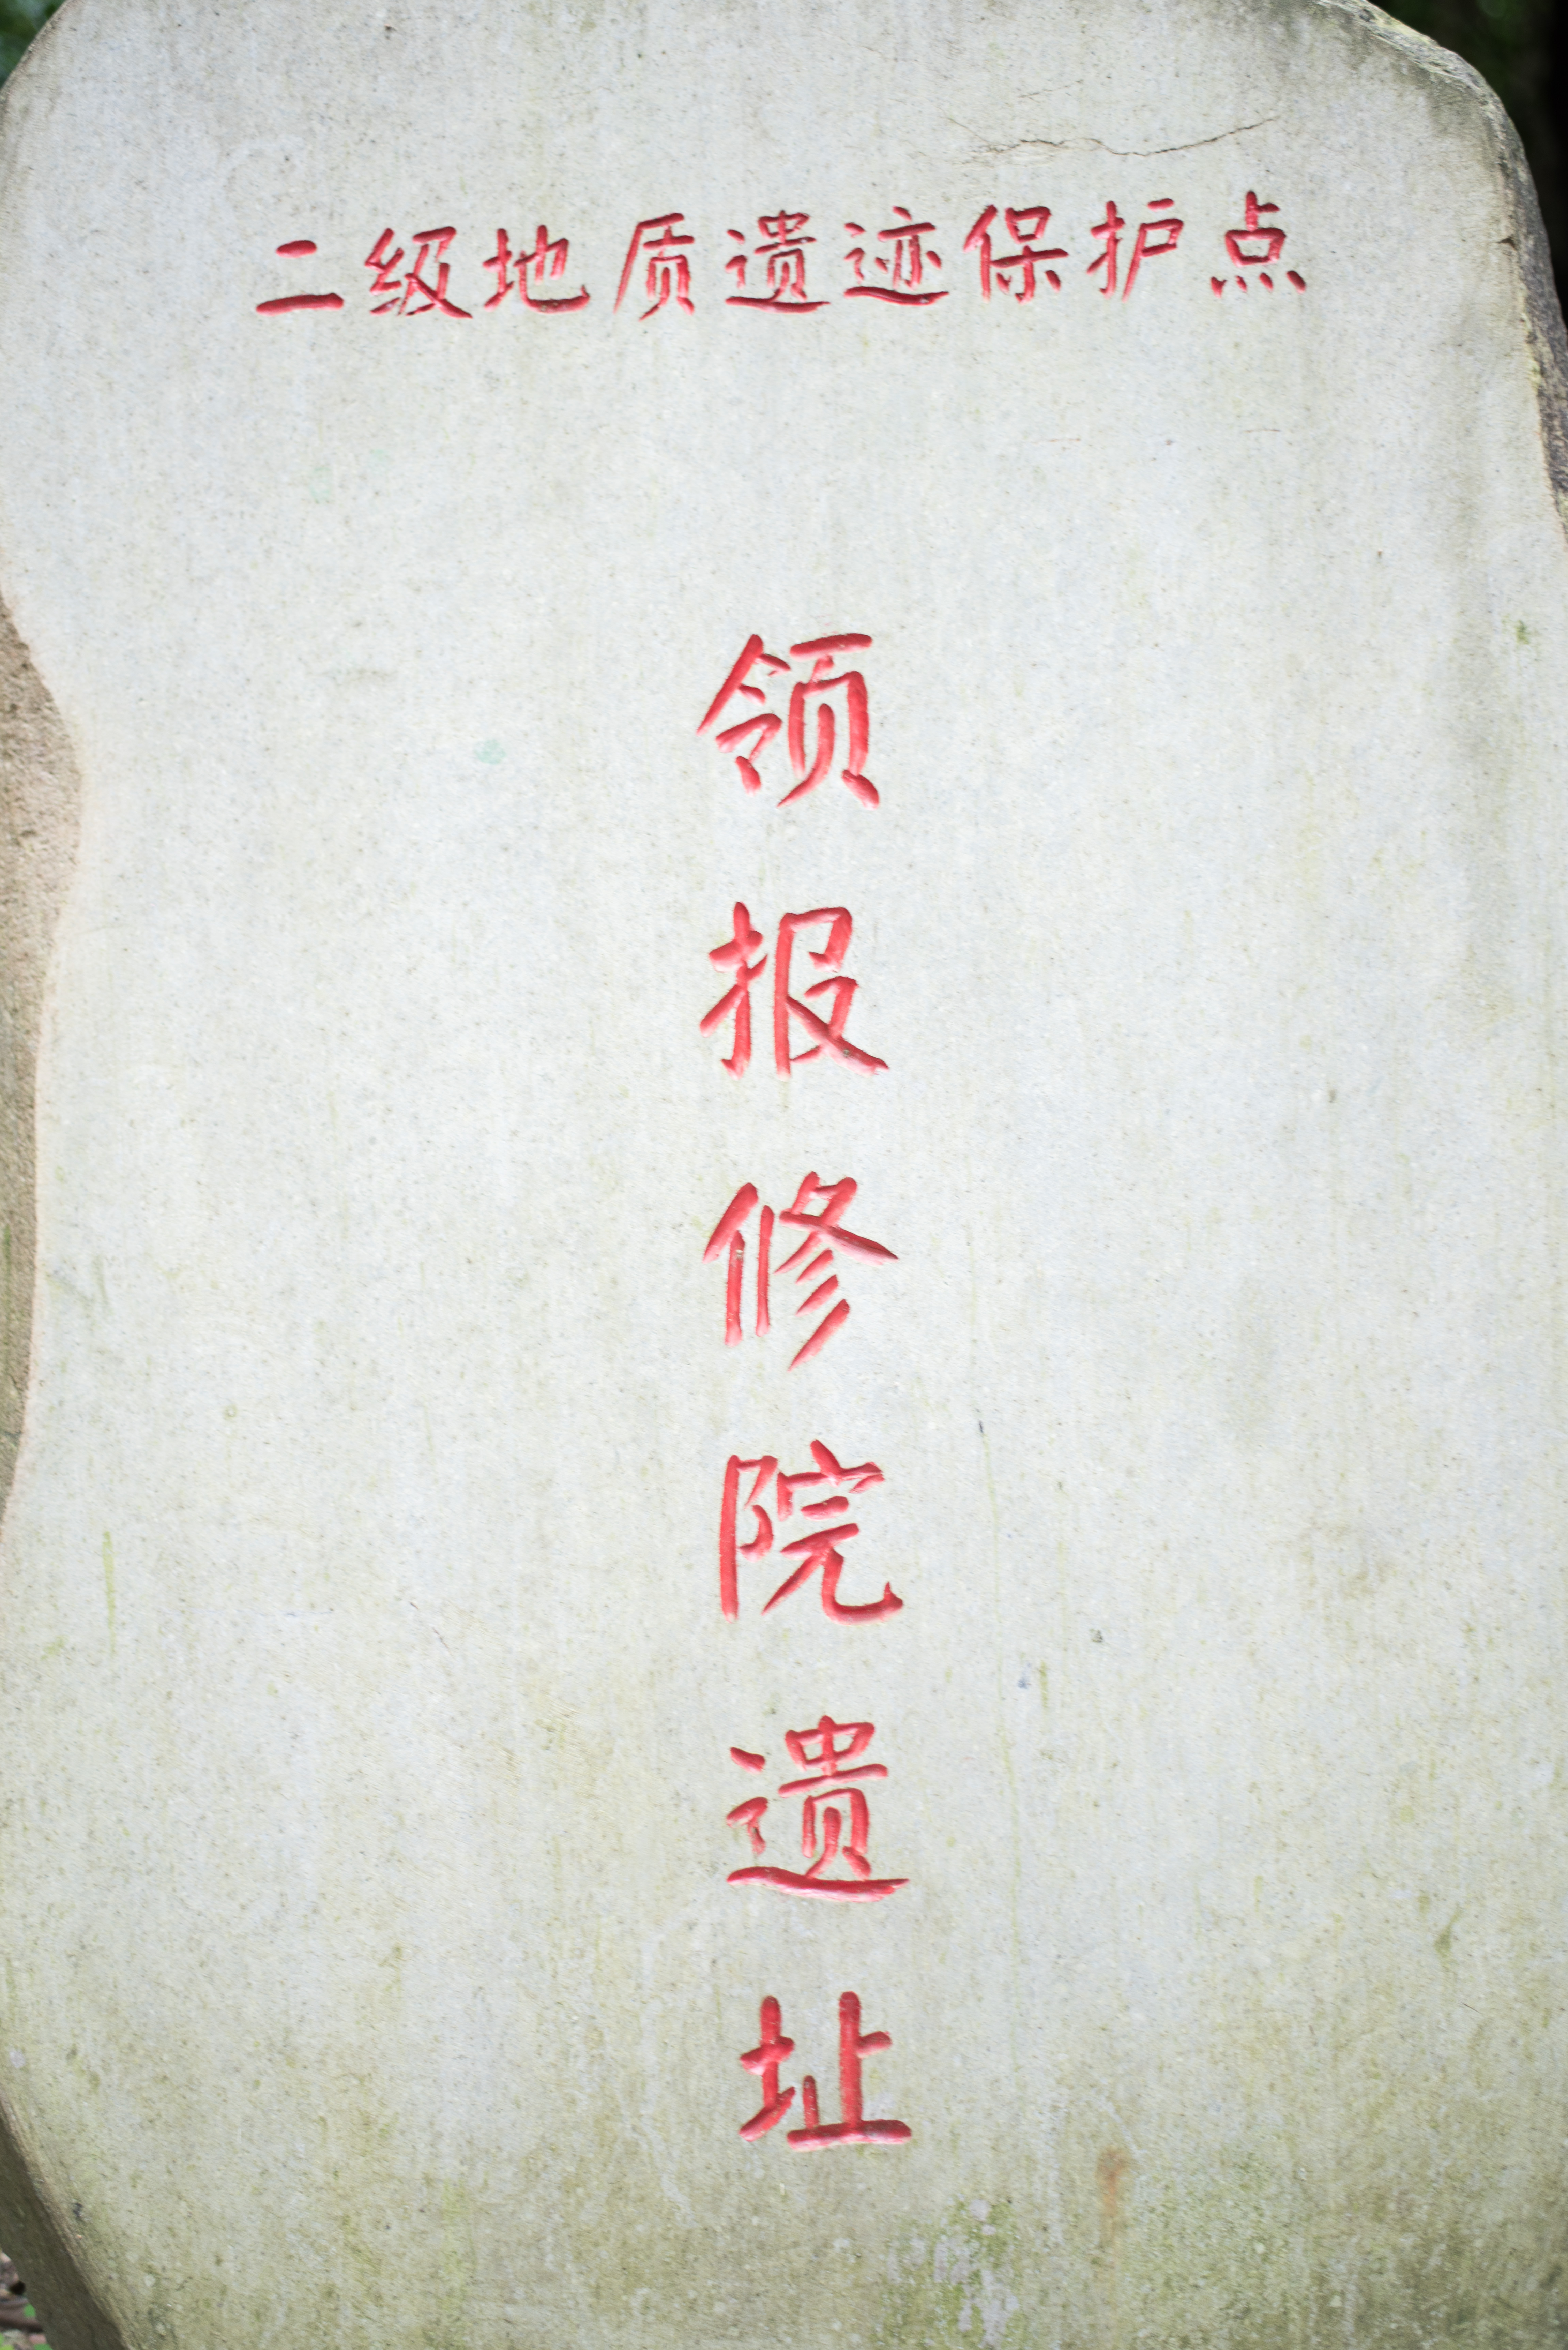 二级地质遗迹保护点
领报修院遗址